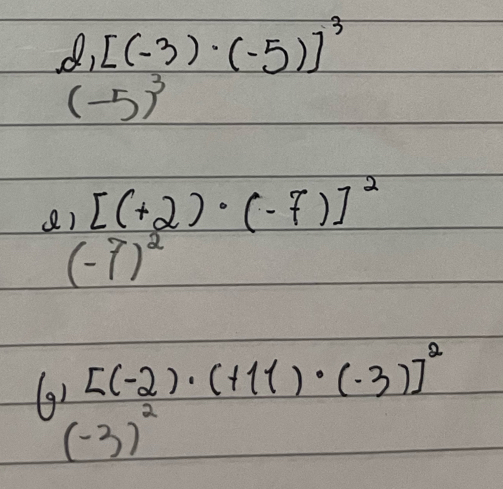 d, [(-3) · (-5)]³
(-5)³
e, [(+2) · (-7)]²
(-7)²
g, [(-2) · (+11) · (-3)]²
(-3)²